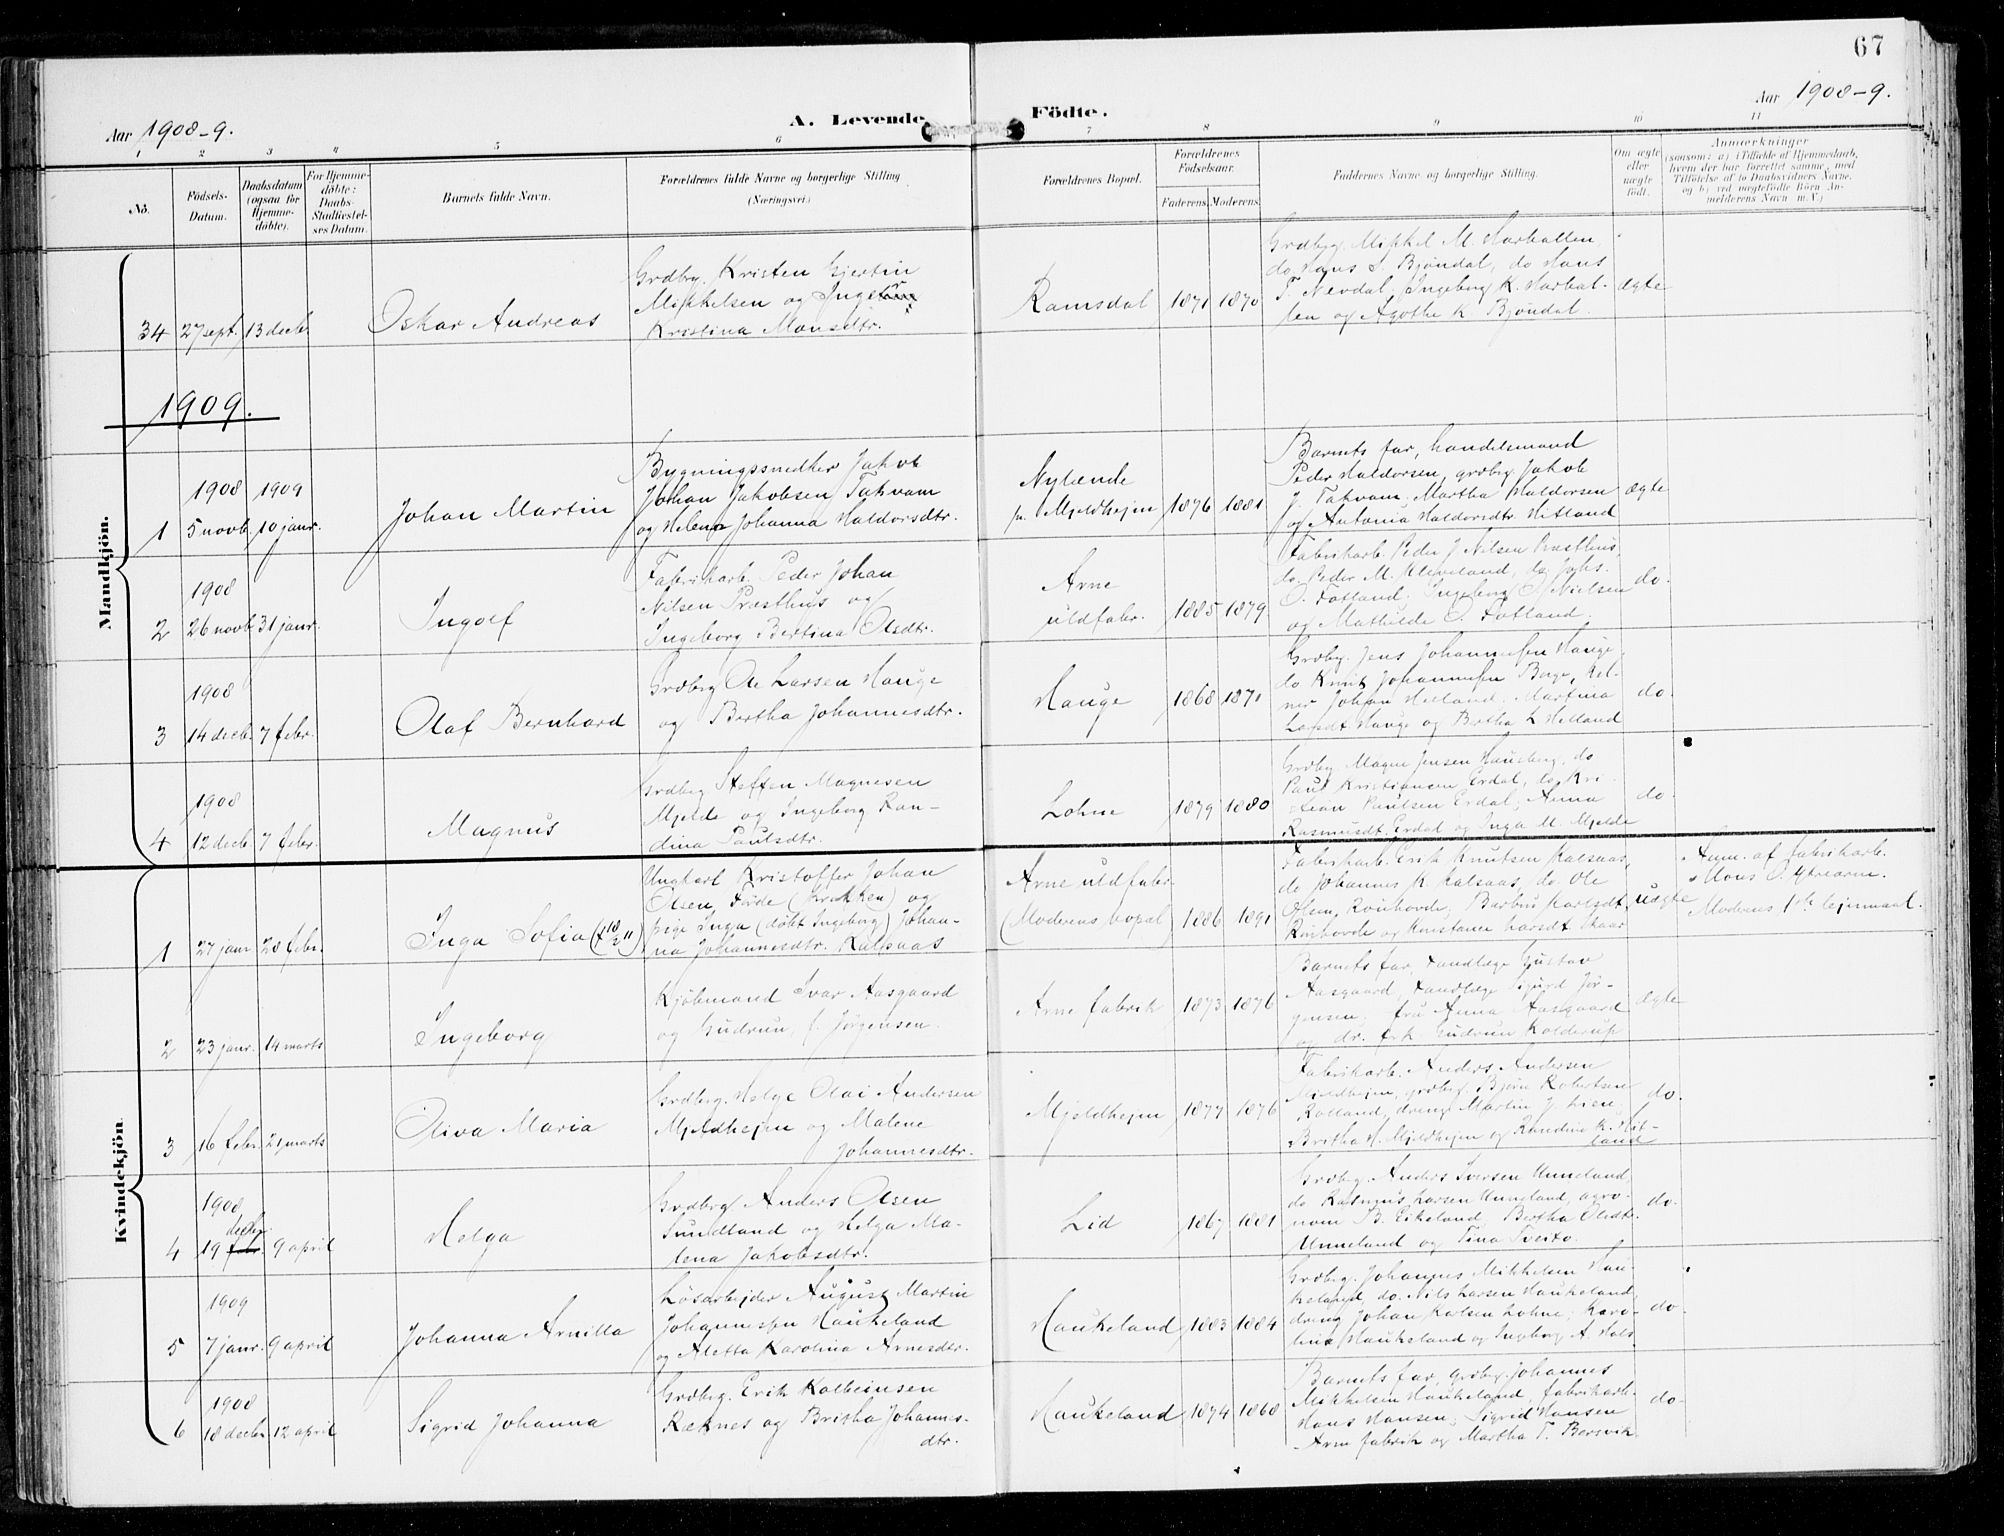 67
Aar 1908-9.
A. Levende Födte.
Aar 1908-9.
1 2 3 4 5 6 7 8 9 10 11
No.
Födsels-
Datum.
Daabsdatum
(ogsaa for
Hjemme-
döbte).
For Hjemme-
döbte:
Daabs-
Stadfæstel-
ses Datum.
Barnets fulde Navn.
Forældrenes fulde Navne og borgerlige Stilling
(Næringsvei.)
Forældrenes Bopæl.
Forældrenes
Födselsaar.
Faderens. Moderens.
Faddernes Navne og borgerlige Stilling.
Om ægte
eller
uægte
födt.
Anmærkninger
(saasom: a) i Tilfælde af Hjemmedaab,
hvem der har forrettet samme, med
Tilföielse af to Daabsvidners Navne,
og b) ved uægtefödte Börn An-
melderens Navn m.V.)
Mandkjön.
34 27 sept. 13 decb.
Oskar Andreas
Grdbrg. Kristen Gjertin
Mikkelsen og
Kristina Monsdtr.
Ramsdal
1871 1870
Grdbyg. Mikkel M.
do Hans J. Bjöndal, do Hans
T. Nevdal, Ingeborg K.
og Agothe K. Bjöndal.
ægte
1909.
1908 1909
1 5 novb. 10 janr.
Johan Martin
Bygningssnedker Jakob
Johan Jakobsen Takvam
og Helena Johanna Haldorsdtr.
Nylænde
p. Mjeldhejen
1876 1881
Barnets far, handelsmand
Peder Haldorsen, grdbrg. Jakob
J. Takvam. Martha Haldorsen
og Antonia Haldorsdtr. Hitland
ægte
1908
2 26 novb. 31 janr.
Ingolf
Fabrikarb. Peder Johan
Nilsen Præsthus og
Ingeborg Bertina Olsdtr.
Arne
uldfabr.
1885 1879
Fabrikarb. Peder J. Nilsen Præsthus,
do. Peder M. Kleveland, do Johs.
O. Fotland. Ingeborg O. Nielsen
og Mathilde O. Fotland.
do.
1908
3 14 decb. 7 febr.
Olaf Bernhard
Grdbrg Ole Larsen Hauge
og Bertha Johannesdtr.
Hauge
1868 1871
Grdbrg. Jens Johannessen Hauge,
do Knut Johannessen Borge, kel-
ner Johan Helland. Martina
Larsdt Hauge og Bertha L Helland
do.
1908
4 12 decb. 7 febr.
Magnus
Grdbrg Steffen Magnesen
Mjelde og Ingeborg Ran-
dina Paulsdtr.
Lohne
1879 1880
Grdbrg Magne Jensen Hausberg, do
Paul Kristiansen Erdal, do Kri-
stian Paulsen Erdal, Anna
Rasmusdt. Erdal og Inga M. Mjelde
do.
Kvindekjön.
1 27 janr 28 febr.
Inga Sofia (†10/2 11)
Ungkarl Kristoffer Johan
Olsen, Förde og
pige Inga (döbt Ingeborg) Johan-
na Johannesdtr. Kalsaas
Arne uldfabr.
(Moderens bopæl)
1886 1891
Fabrikarb. Erik Knutsen Kalsaas,
do Johannes K. Kalsaas, do. Ole
Olsen, Ronhovde, Barbus Karlsdt.
Ronhovde og Konstance Larsdt Skaar
uægte
Anm. af fabrikarb.
Mons O. Ytrearne.
Moderens 1ste lejermaal.
2 23 janr. 14 marts
Ingeborg
Kjöbmand Ivar Aasgaard
og Gudrun, f. Jörgensen.
Arne fabrik
1873 1876
Barnets far, tandlæge Gustav
Aasgaard, tandlæge Sigurd Jör-
gensen, fru Anna Aasgaard
og dr. frk Gudrun Kolderup
ægte
3 16 febr. 21 marts
Oliva Maria
Grdbrg. Helge Olai Andersen
Mjeldhejen og Malene
Johannesdtr.
Mjeldhejen
1877 1876
Fabrikarb. Anders Andersen
Mjeldhejen, grdbrg. Björn Robertsen
Rolland, dreng Martin J. Lien.
Britha H. Mjeldhejen og Randine K. Hit-
land
do.
1908
decbr.
4 19 febr. 9 april
Helga
Grdbrg Anders Olsen
Sundland og Helga Ma-
lena Jakobsdtr.
Lid
1867 1881
Grdbrg. Anders Iversen Unneland,
do Rasmus Larsen Unneland, agro-
nom B. Eikeland, Bertha Olsdtr.
Unneland og Tina Tveito.
do.
1909
5 7 janr. 9 april
Johanna Arnilla
Lösarbejder August Martin
Johannessen Haukeland
og Aletta Karolina Arnesdtr.
Haukeland
1883 1884
Grdbrg. Johannes Mikkelsen Hau-
keland, do. Nils Larsen Haukeland,
dreng Johan Karlsen Lohne; Karo-
lina Haukeland og Ingeborg A. Hols
do.
1908
6 18 decbr 12 april
Sigrid Johanna
Grdbrg. Erik Kolbeinsen
Reknes og Britha Johannes-
dtr.
Haukeland
1874 1868
Barnets far, grdbrg. Johannes
Mikkelsen Haukeland, fabrikarb.
Hans Hansen, Sigrid Hansen
Arne fabrik og Martha T. Bersvik.
do.